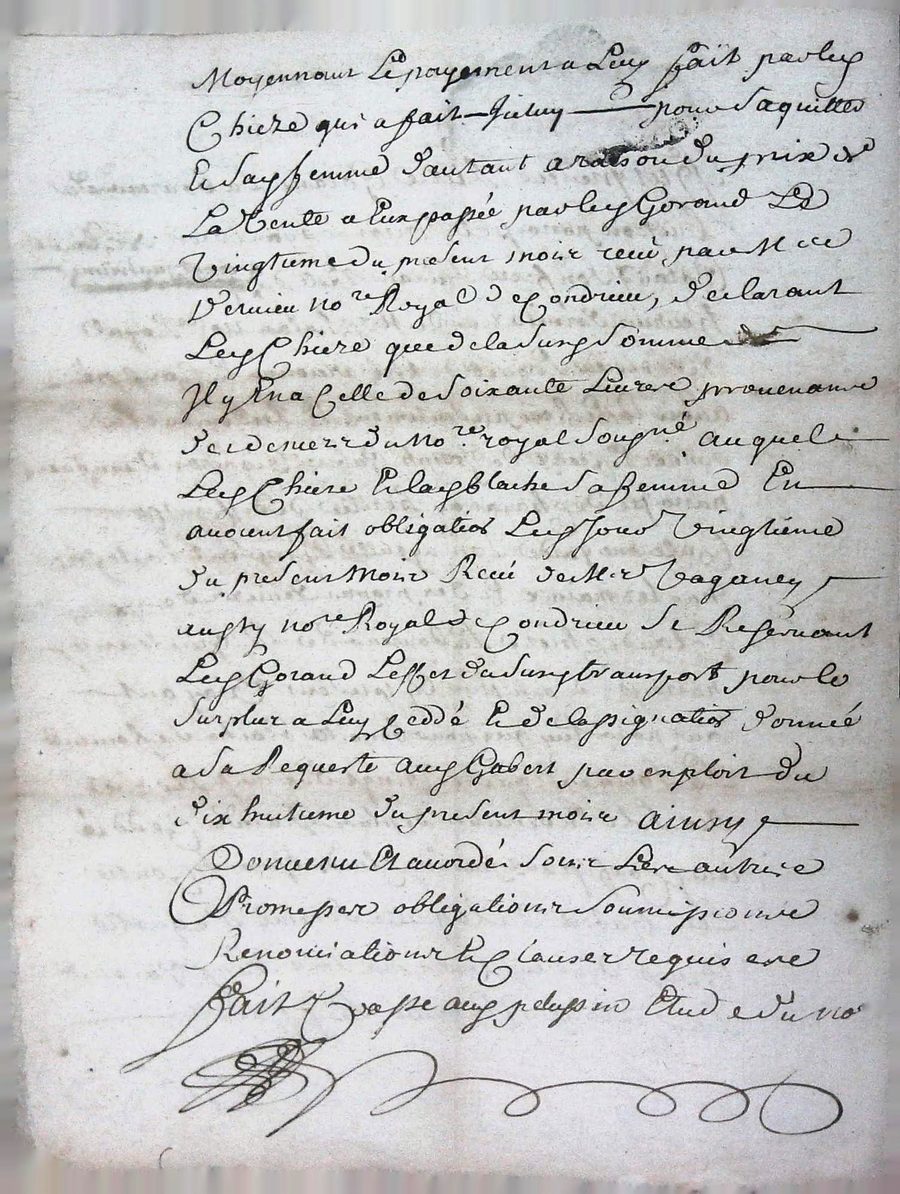 Moyennant Le payement a Luy fait par ledt
Chieze qui a fait Iceluy pour s'aquitter
Et sad femme d'autant a raison du prix de
La Vente a Eux passée par led Goraud Le
Vingtieme du present mois receu par M re
Verrieu no.re Royal de Condrieu, declarant
Led Chieze que de la susd somme
Il y En a Celle de soixante Livres provenance
des deniers du No.re royal sousg.né auquel
Led Chieze Et lad blache sa femme En
avoient fait obligation Led jour Vingtieme
du present mois Receu de M.r Vaganey
aussy no.re Royal de Condrieu se Reservant
Led Goraud L'effet du susd transport pour le
surplus a Luy Ceddé Et de l'assignation donnée
a sa Requeste aud Gabert par exploit du
dix huitieme du present mois ainsy
Convenu Et accordé sous Les autres
Promesses obligations soumissions
Renonciations Et Clauses requises
fait Et passe aud pelussin Etude du no.re